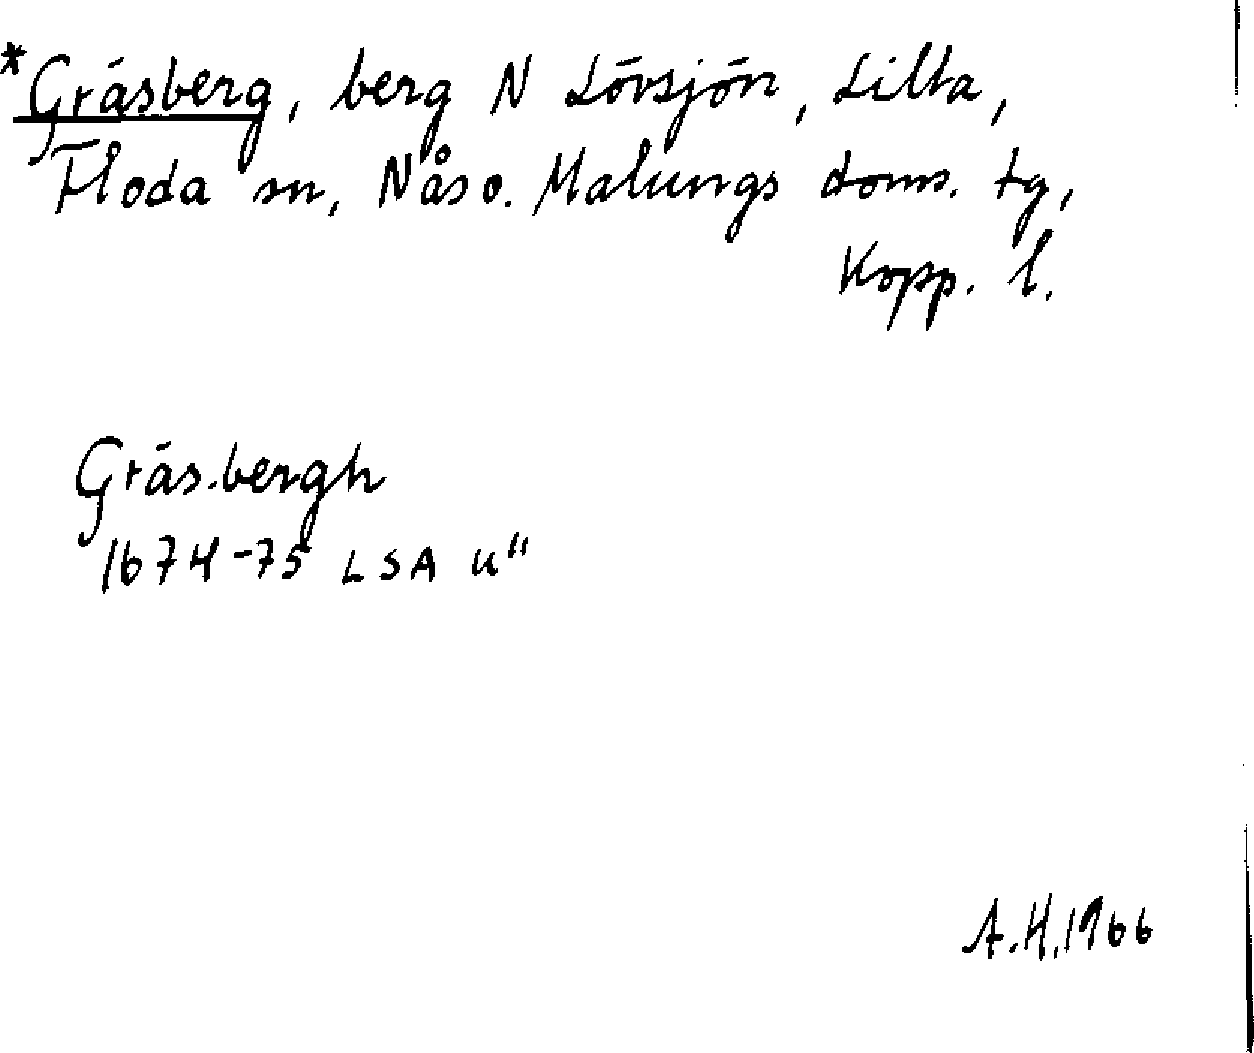 *Gräsberg, berg N Lövsjön, Lilla,
Floda sn, Nås o. Malungs doms. tg,
Kopp. l.
Gräs.bergh
1674-75 LSA u"
A.H.1966